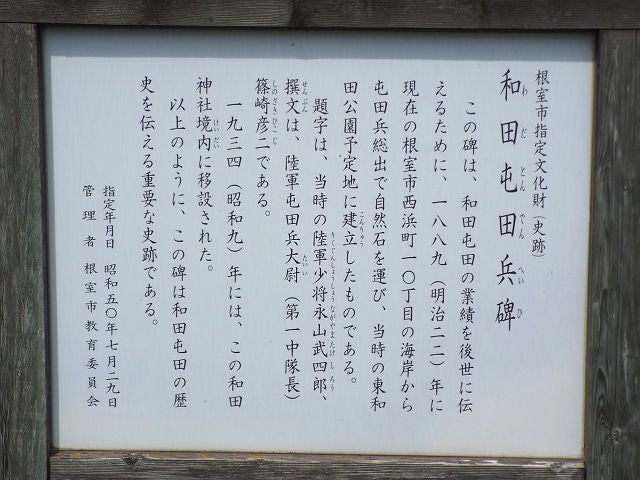 根室市指定文化財（史跡）
和田屯田兵碑
わだとんでんへいひ
この碑は、和田屯田の業績を後世に伝
えるために、一八八九（明治二二）年に
現在の根室市西浜町一〇丁目の海岸から
屯田兵総出で自然石を運び、当時の東和
田公園予定地に建立したものである。
こんりゅう
題字は、当時の陸軍少将永山武四郎、
りくぐんしょうしょうながやまたけしろう
撰文は、陸軍屯田兵大尉（第一中隊長）
せんぶん
たいい
篠崎彦二である。
しのざきひこじ
一九三四（昭和九）年には、この和田
神社境内に移設された。
けいだい
以上のように、この碑は和田屯田の歴
史を伝える重要な史跡である。
指定年月日　昭和五〇年七月二九日
管理者　根室市教育委員会